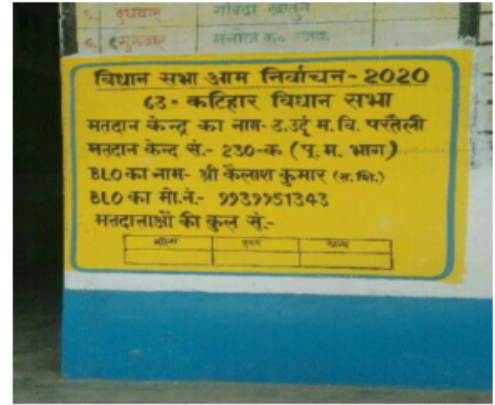 ५. बुधवार
६. गुरुवार मनोज कु०
विधान सभा आम निर्वाचन - 2020
63 - कटिहार विधान सभा
मतदान केन्द्र का नाम - उ. उर्दू म. वि. परतेली
मतदान केन्द सं. - 230-क (पू. म. भाग)
BLO का नाम - श्री कैलाश कुमार (स. शि.)
BLO का मो.नं. - 9939951343
मतदाताओं की कुल सं. -
महिला पुरुष